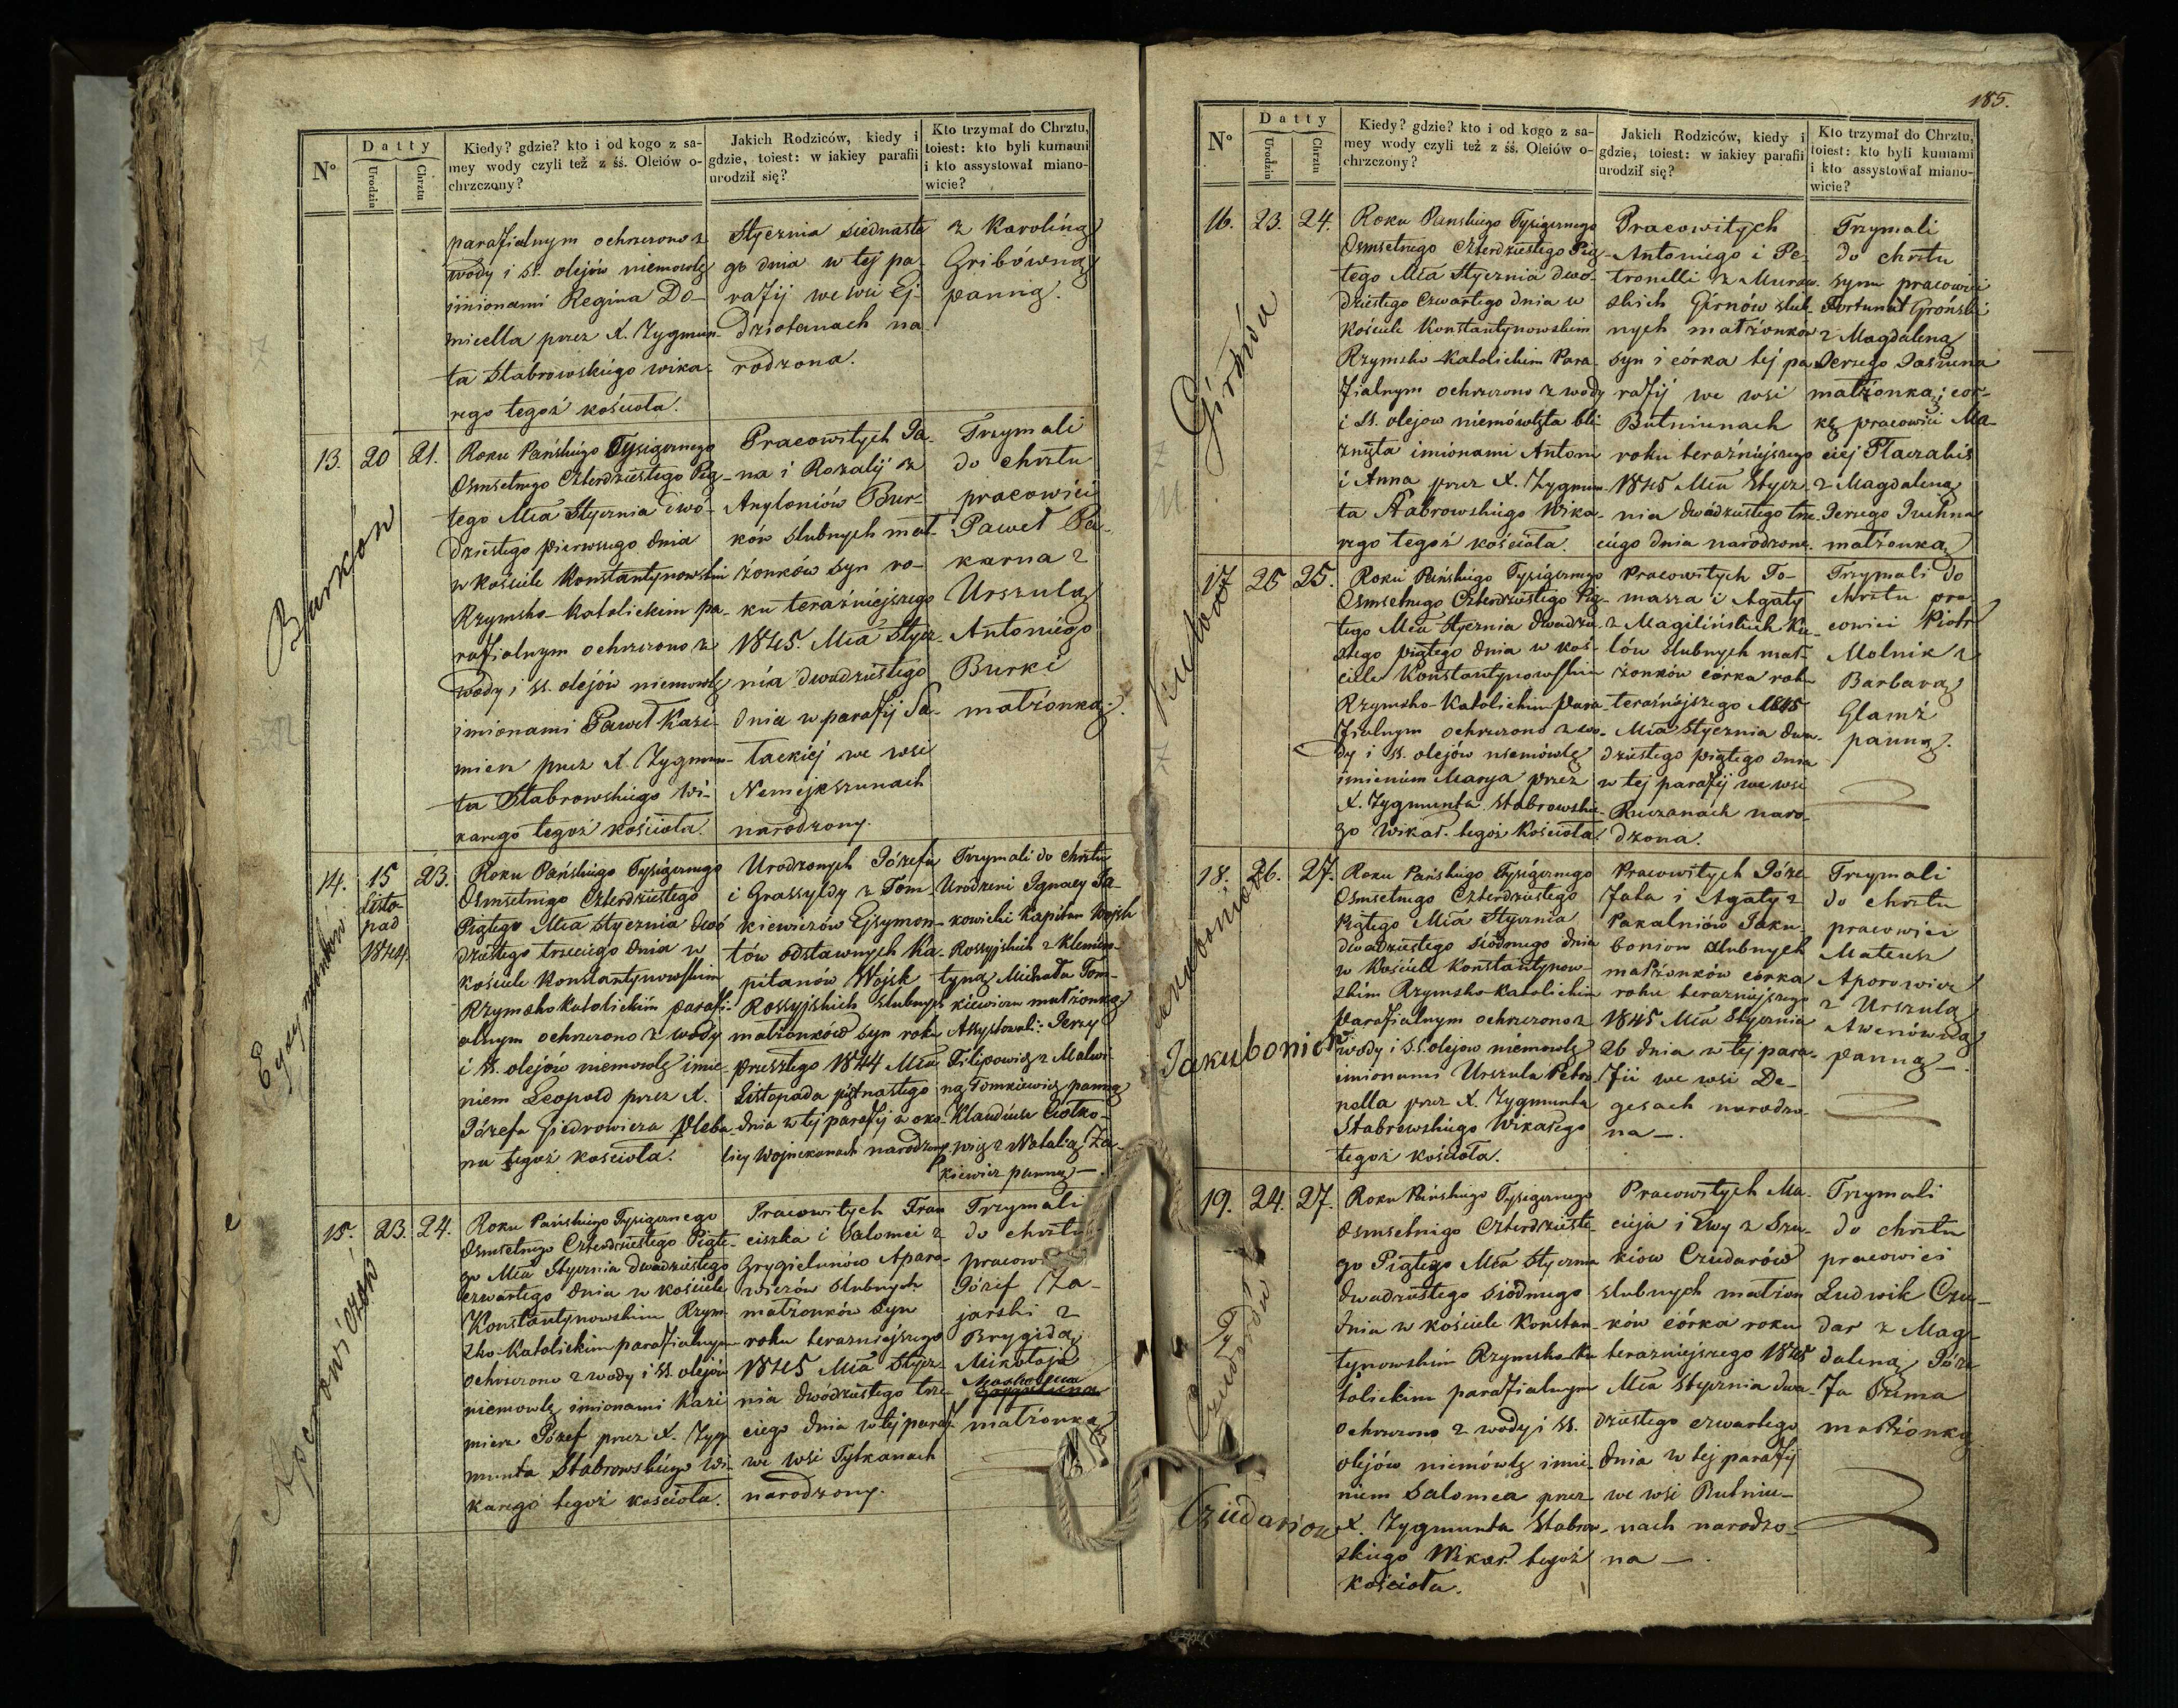 No
Datty
Urodzin
Chrztu
Kiedy? gdzie? kto i od kogo z sa-
mey wody czyli też z śś. Oleiów o-
chrzczony?
Jakich Rodziców, kiedy i
gdzie, toiest: w iakiey parafii
urodził się?
Kto trzymał do Chrztu,
toiest: kto byli kumami
i kto assystował miano-
wicie?
parafialnym ochrzczono z
wody i ss. olejów niemowlę
imionami Regina Do-
micella przez X. Zygmun-
ta Stabrowskiego wika-
rego tegoż kościoła.
Stycznia siednaste
go dnia w tej pa-
rafij we wsi Ej-
dziotanach na-
rodzona.
z Karoliną
Gribówną
panną.
Burków
13. 20 21.
Roku Pańskiego Tysiącznego
Osmsetnego Czterdziestego Pią-
tego Mca Stycznia dwó-
dziestego pierwszego dnia
w kościele Konstantynowskim
Rzymsko-Katolickim pa-
rafialnym ochrzczono z
wody i ss. olejów niemowlę
imionami Paweł Kazi-
mierz przez X. Zygmun-
ta Stabrowskiego Wi-
karego tegoż kościoła.
Pracowitych Ja-
na i Rozalij z
Anyloniów Bur-
ków ślubnych mał-
żonków syn ro-
ku teraźniejszego
1845. Mca Stycz-
nia dwudziestego
dnia w parafij Ła-
tackiéj we wsi
Nemejkszunach
narodzony.
Trzymali
do chrztu
pracowici
Paweł Pa-
karna z
Urszulą
Antoniego
Burki
małżonką.
14. 15 Listo- pad 1844 23.
Roku Pańskiego Tysiącznego
Osmsetnego Czterdziestego
Piątego Mca Stycznia dwó
dziestego trzeciego dnia w
kościele Konstantynowskim
Rzymsko Katolickim parafi-
alnym ochrzczono z wody
i ss. olejów niemowlę imie-
niem Leopold przez X.
Józefa Giedrowicza Pleba-
na tegoż kościoła.
Urodzonych Józefa
i Grassyldy z Tom-
kiewiczów Ejsymon-
tów odstawnych Ka-
pitanów Wojsk
Rossyjskich ślubnych
małżonków syn roku
przeszłego 1844 Mca
Listopada piętnastego
dnia w tej parafij w oko-
licy Wojnekanach narodzony.
Trzymali do chrztu
Urodzeni Ignacy
kowicki Kapitan Wojsk
Rossyjskich z Klemen-
tyną Michała Tom-
kiewicza małżonką
Assystowali: Jerzy
Filipowicz z Malwi-
ną Tomkiewicz panną
Klaudiusz
z Natalią
kiewicz panną.
15. 23. 24.
Roku Pańskiego Tysiącznego
Osmsetnego Czterdziestego Piąte-
go Mca Stycznia dwódziestego
czwartego dnia w kościele
Konstantynowskim Rzym-
sko-Katolickim parafialnym
ochrzczono z wody i ss. olejów
niemowlę imionami Kazi-
mierz Józef przez X. Zyg-
munta Stabrowskiego Wi-
karego tegoż kościoła.
Pracowitych Fran
ciszka i Salomei z
Grygieluniów Aparo-
wiczów ślubnych
małżonków syn
roku teraźniejszego
1845 Mca Stycz-
nia dwódziestego trze-
ciego dnia w tej paraf.
we wsi Tytkanach
narodzony.
Trzymali
do chrztu
pracow
Józef
jarski z
Brygidą
Mikołaja
małżonką
185.
No
Datty
Urodzin
Chrztu
Kiedy? gdzie? kto i od kogo z sa-
mey wody czyli też z śś. Oleiów o-
chrzczony?
Jakich Rodziców, kiedy i
gdzie, toiest: w iakiey parafii
urodził się?
Kto trzymał do Chrztu,
toiest: kto byli kumami
i kto assystował miano-
wicie?
Girnów
16. 23. 24.
Roku Panskiego Tysiącznego
Osmsetnego Czterdziestego Pią
tego Mca Stycznia dwó-
dziestego Czwartego dnia w
Kościele Konstantynowskim
Rzymsko-Katolickim Para
fialnym ochrzczono z wody
i ss. olejow niemówlęta bli-
znięta imionami Antoni
i Anna przez X. Zygmun-
ta Stabrowskiego Wika-
rego tegoż kościoła.
Pracowitych
Antoniego i Pe-
tronelli z Muraw-
skich Girnów ślub-
nych małżonków
syn i córka tej pa
rafij we wsi
Butniunach
roku teraźniejszego
1845 Mca Stycz-
nia dwódziestego trze-
ciego dnia narodzone.
Trzymali
do chrztu
syna pracowici
Fortunat Groński
z Magdaleną
Jerzego Jasiuna
małżonką; cór-
kę pracowici Ma-
ciej Płaczabis
z Magdaleną
Jerzego Juchna
małżonką
17 25 25.
Roku Pańskiego Tysiącznego
Osmsetnego Czterdziestego Pią-
tego Mca Stycznia dwudzie-
stego piątego dnia w koś-
ciele Konstantynowskim
Rzymsko-Katolickim Para-
fialnym ochrzczono z wo-
dy i ss. olejów niemówlę
imieniem Marya przez
X. Zygmunta Stabrowskie-
go Wikar. tegoż Kościoła.
Pracowitych To-
masza i Agaty
z Magilińskich Ku-
lów ślubnych mał-
żonków córka roku
teraźniejszego 1845
Mca Stycznia dwu-
dziestego piątego dnia
w tej parafij we wsi
Ruczanach naro-
dzona.
Trzymali do
chrztu pra-
cowici Piotr
Molnik z
Barbarą
Glamż
panną.
Jakuboniow
18. 26. 27.
Roku Pańskiego Tysiącznego
Osmsetnego Czterdziestego
Piątego Mca Stycznia
dwudziestego siódmego dnia
w Kościele Konstantynow-
skim Rzymsko-Katolickim
Parafialnym ochrzczono z
wody i s.s. olejow niemowlę
imionami Urszula Petro-
nella przez X. Zygmunta
Stabrowskiego Wikarego
tegoż kościoła.
Pracowitych Józe-
fata i Agaty z
Pakalniów Jaku-
boniow ślubnych
małżonków córka
roku teraźniejszego
1845 Mca Stycznia
26 dnia w tej para-
fii we wsi De-
gesach narodzo-
na.
Trzymali
do chrztu
pracowici
Mateusz
Aporowicz
z Urszulą
Awenówną
panną.
Cziudariow
19. 24. 27.
Roku Pańskiego Tysiącznego
Osmsetnego Czterdzieste-
go Piątego Mca Stycznia
dwudziestego siódmego
dnia w kościele Konstan-
tynowskim Rzymsko-Ka
tolickim parafialnym
ochrzczono z wody i ss.
olejów niemówlę imie-
niem Salomea przez
X. Zygmunta Stabrow-
skiego Wikar. tegoż
kościoła.
Pracowitych Ma-
cieja i Ewy z Szu-
kiów Cziudarów
ślubnych małżon
ków córka roku
teraźniejszego 1845
Mca Stycznia dwu-
dziestego czwartego
dnia w tej parafij
we wsi Butniu-
nach narodzo-
na.
Trzymali
do chrztu
pracowici
Ludwik Cziu-
dar z Mag-
daleną Józe
fa
małżonką